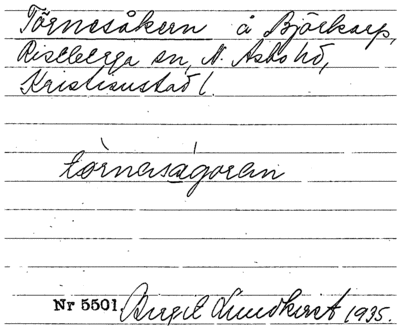 Törnesåkern å Björkarp,
Riseberga sn, N. Åsbo hd,
Kristianstad l.
tö̀rnaságoren
Nr 5501 Birgit Lundkvist 1935.